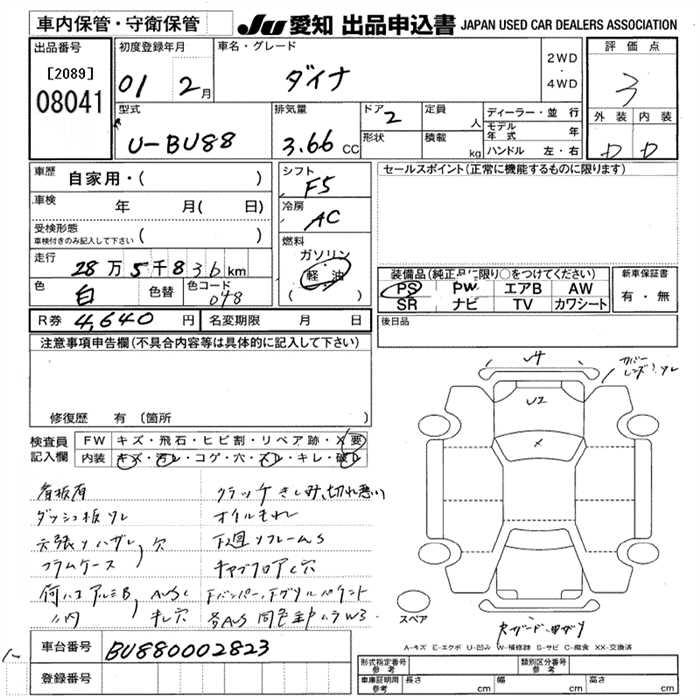 車内保管・守衛保管
JU 愛知 出品申込書 JAPAN USED CAR DEALERS ASSOCIATION
出品番号
[2089]
08041
初度登録年月
01 2月
車名・グレード
ダイナ
2WD
・
4WD
評価点
3
外装 内装
D D
型式
U-BU88
排気量
3.66 CC
ドア 2
形状
定員 人
積載 kg
ディーラー・並行
モデル年式 年
ハンドル 左・右
車歴 自家用・( )
車検 年 月( 日)
受検形態
車検付きのみ記入して下さい ( )
走行
28万5千836km
色 白 色替 色コード 048
シフト F5
冷房 AC
燃料
ガソリン
軽油
( )
セールスポイント(正常に機能するものに限ります)
装備品(純正品に限り○をつけてください)
PS PW エアB AW
SR ナビ TV カワシート
新車保証書
有・無
R券 4,640 円 名変期限 月 日
後日品
注意事項申告欄(不具合内容等は具体的に記入して下さい)
修復歴 有 (箇所 )
検査員記入欄
FW キズ・飛石・ヒビ割・リペア跡・X要
内装 キズ・汚レ・コゲ・穴・スレ・キレ・破レ
看板有
ダッシュ板ワレ
クラッチきしみ、切れ悪い
オイルもれ
キャブフロア穴
U4
U2
X
スペア
A-キズ E-エクボ U-凹み W-補修跡 S-サビ C-腐食 XX-交換済
車台番号 BU880002823
登録番号
形式指定番号
参考
類別区分番号
参考
車庫証明用
参考
長さ cm 幅 cm 高さ cm